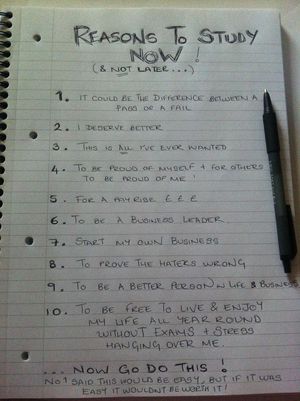 REASONS TO STUDY
NOW!
(& NOT LATER...)
1. IT COULD BE THE DIFFERENCE BETWEEN A
PASS OR A FAIL
2. I DESERVE BETTER
3. THIS IS ALL I'VE EVER WANTED
4. TO BE PROUD OF MYSELF + FOR OTHERS
TO BE PROUD OF ME!
5. FOR A PAYRISE £ £ £
6. TO BE A BUSINESS LEADER.
7. START MY OWN BUSINESS
8. TO PROVE THE HATERS WRONG
9. TO BE A BETTER PERSON IN LIFE & BUSINESS
10. TO BE FREE TO LIVE & ENJOY
MY LIFE ALL YEAR ROUND
WITHOUT EXAMS + STRESS
HANGING OVER ME.
... NOW GO DO THIS!
NO 1 SAID THIS WOULD BE EASY, BUT IF IT WAS
EASY IT WOULDN'T BE WORTH IT!